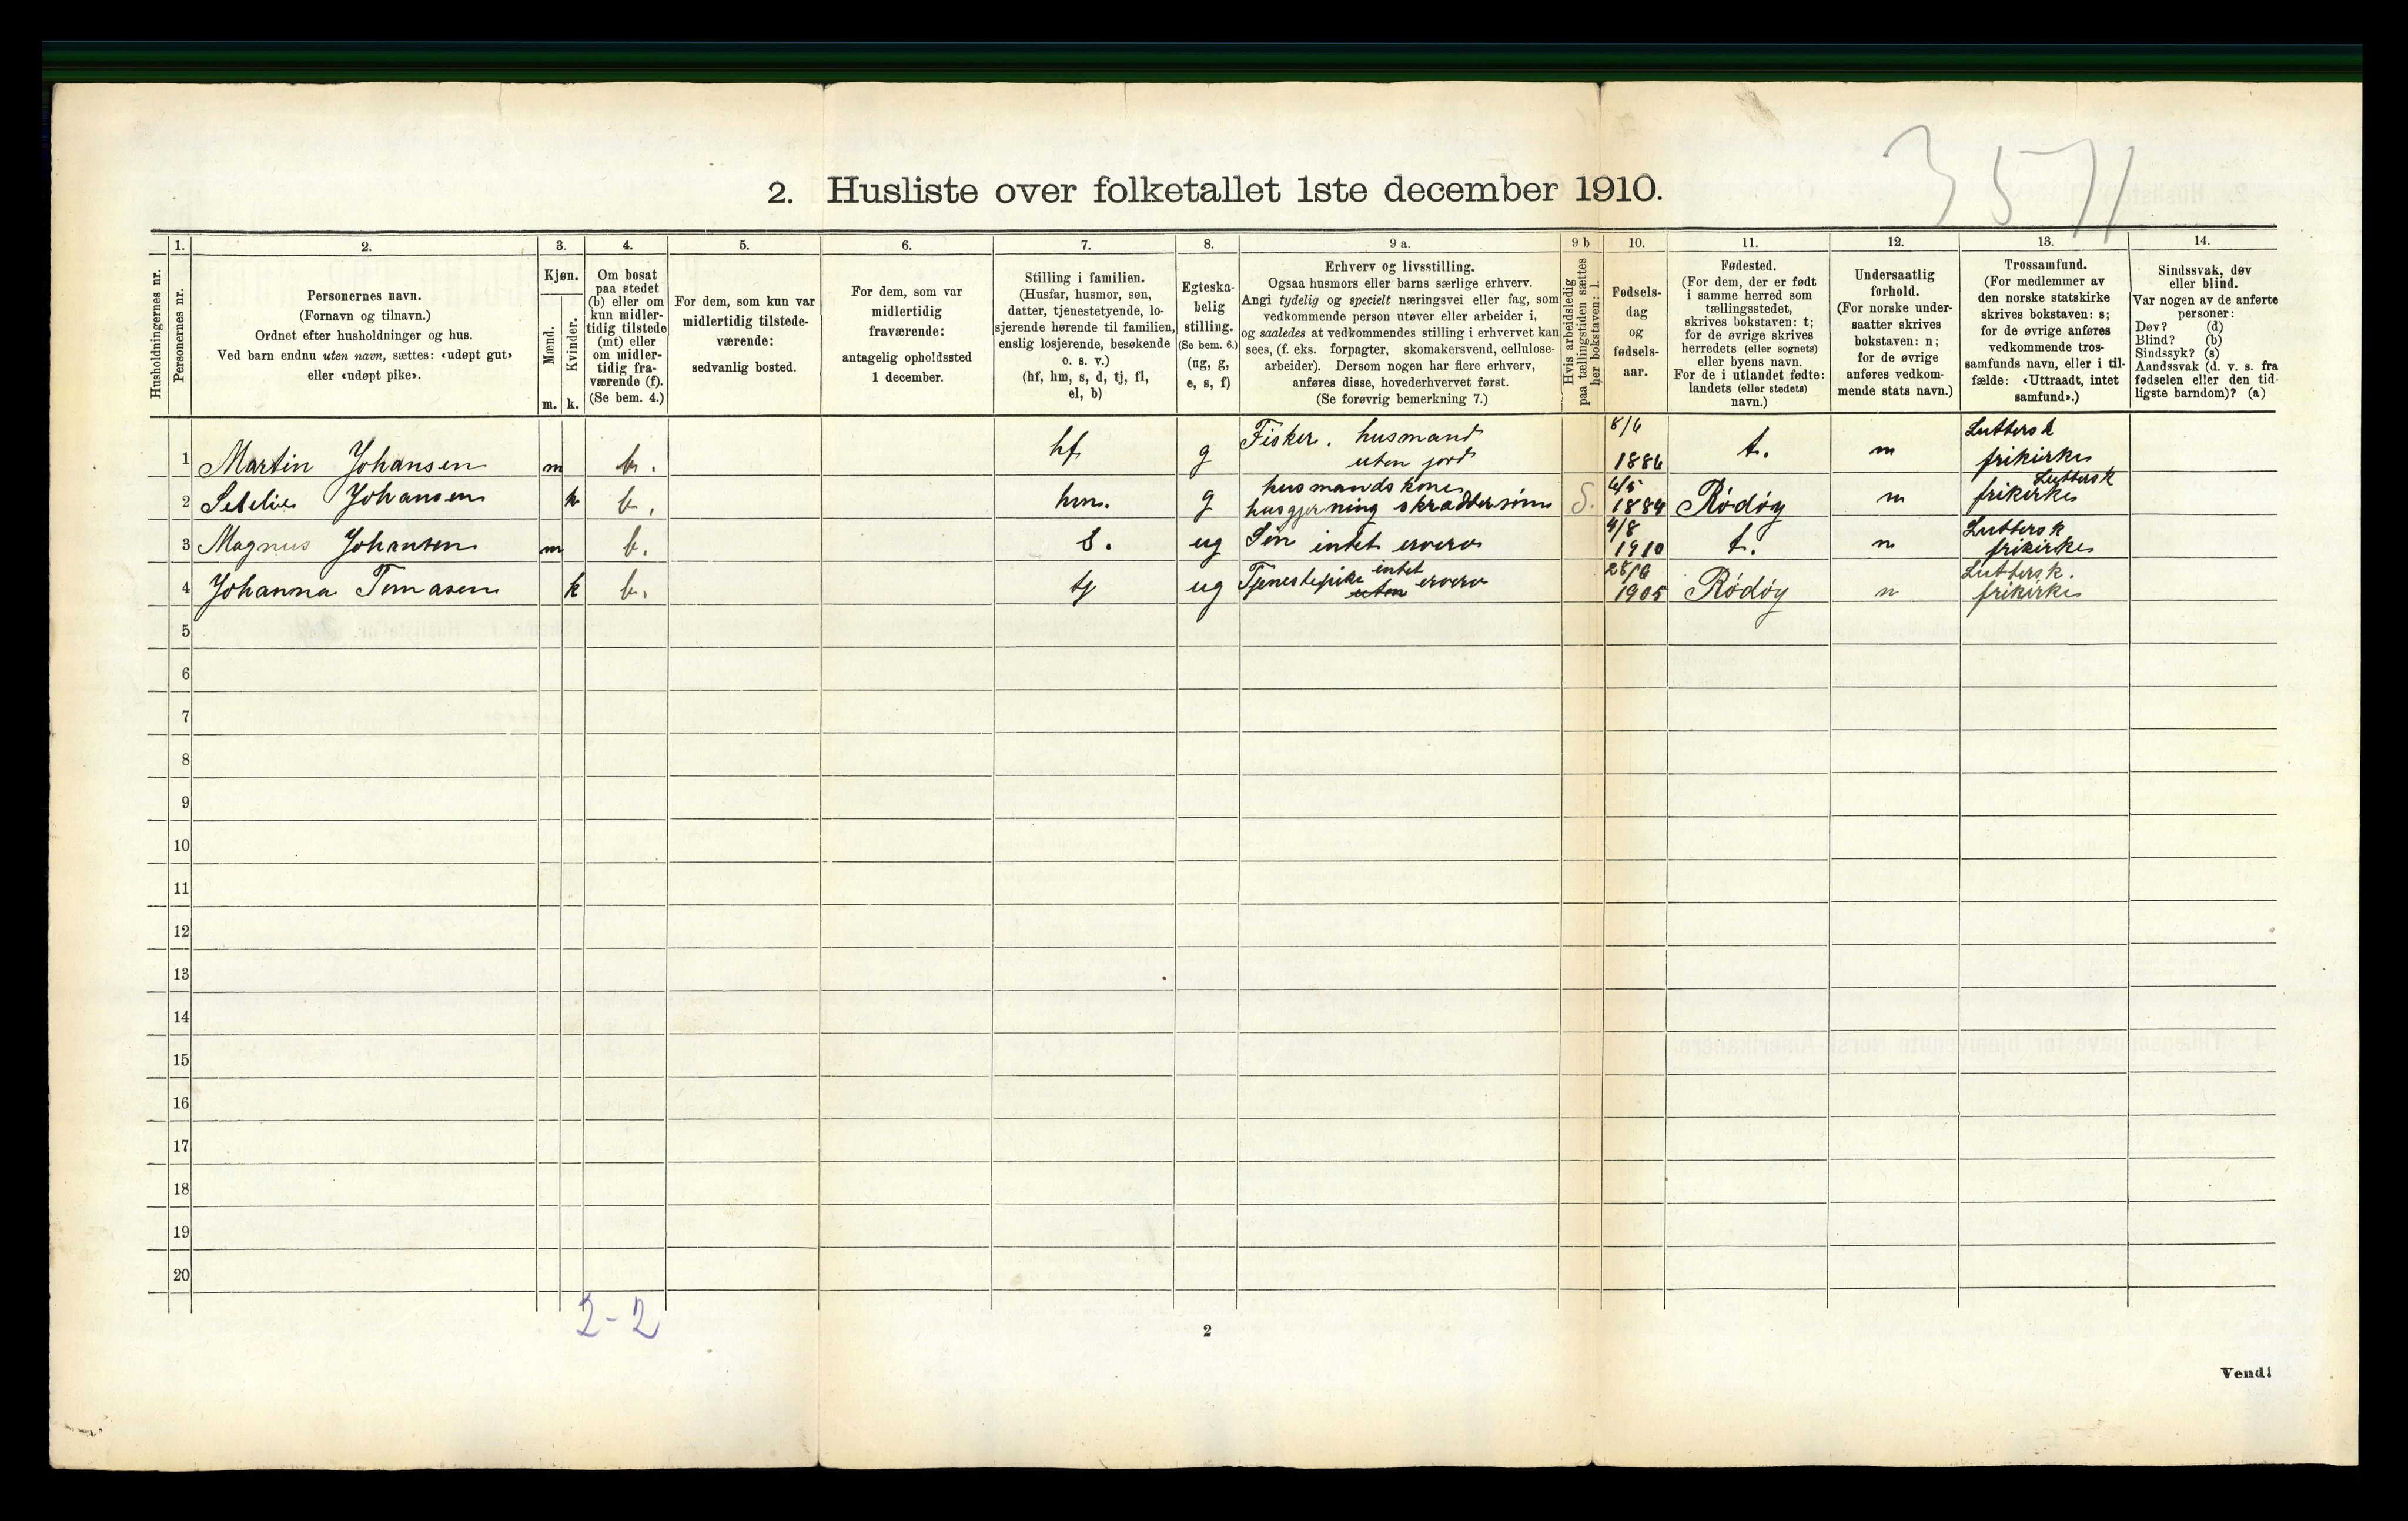 3571
2. Husliste over folketallet 1ste december 1910.
Husholdningernes nr.
1.
Personernes nr.
2.
Personernes navn.
(Fornavn og tilnavn.)
Ordnet efter husholdninger og hus.
Ved barn endnu uten navn, sættes: «udøpt gut»
eller «udøpt pike».
3.
Kjøn.
Mænd.
Kvinder.
m. k.
4.
Om bosat
paa stedet
(b) eller om
kun midler-
tidig tilstede
(mt) eller
om midler-
tidig fra-
værende (f).
(Se bem. 4.)
5.
For dem, som kun var
midlertidig tilstede-
værende:
sedvanlig bosted.
6.
For dem, som var
midlertidig
fraværende:
antagelig opholdssted
1 december.
7.
Stilling i familien.
(Husfar, husmor, søn,
datter, tjenestetyende, lo-
sjerende hørende til familien,
enslig losjerende, besøkende
o. s. v.)
(hf, hm, s, d, tj, fl,
el, b)
8.
Egteska-
belig
stilling.
(Se bem. 6.)
(ug, g,
e, s, f)
9 a.
Erhverv og livsstilling.
Ogsaa husmors eller barns særlige erhverv.
Angi tydelig og specielt næringsvei eller fag, som
vedkommende person utøver eller arbeider i,
og saaledes at vedkommendes stilling i erhvervet kan
sees, (f. eks. forpagter, skomakersvend, cellulose-
arbeider). Dersom nogen har flere erhverv,
anføres disse, hovederhvervet først.
(Se forøvrig bemerkning 7.)
9 b
Hvis arbeidsledig
paa tællingstiden sættes
her bokstaven: l.
10.
Fødsels-
dag
og
fødsels-
aar.
11.
Fødested.
(For dem, der er født
i samme herred som
tællingsstedet,
skrives bokstaven: t;
for de øvrige skrives
herredets (eller sognets)
eller byens navn.
For de i utlandet fødte:
landets (eller stedets)
navn.)
12.
Undersaatlig
forhold.
(For norske under-
saatter skrives
bokstaven: n;
for de øvrige
anføres vedkom-
mende stats navn.)
13.
Trossamfund.
(For medlemmer av
den norske statskirke
skrives bokstaven: s;
for de øvrige anføres
vedkommende tros-
samfunds navn, eller i til-
fælde: «Uttraadt, intet
samfund».)
14.
Sindssvak, døv
eller blind.
Var nogen av de anførte
personer:
Døv? (d)
Blind? (b)
Sindssyk? (s)
Aandssvak (d. v. s. fra
fødselen eller den tid-
ligste barndom)? (a)
1 Martin Johansen m b. hf g Fisker. husmand uten jord 1886 t. n Luttersk frikirke
2 Johansen k b. hm. g husmandskone husgjerning skræddersøm S. 6/5 1884 Rödöy n Luttersk frikirke
3 Magnus Johansen m b. s. ug Sön intet erverv 4/8 1910 t. n Luttersk frikirke
4 Johanna Tomasen k b. tj ug Tjenestepike uten intet erverv 28/6 1905 Rödöy n Luttersk. frikirke
5
6
7
8
9
10
11
12
13
14
15
16
17
18
19
20
2-2
2
Vend!